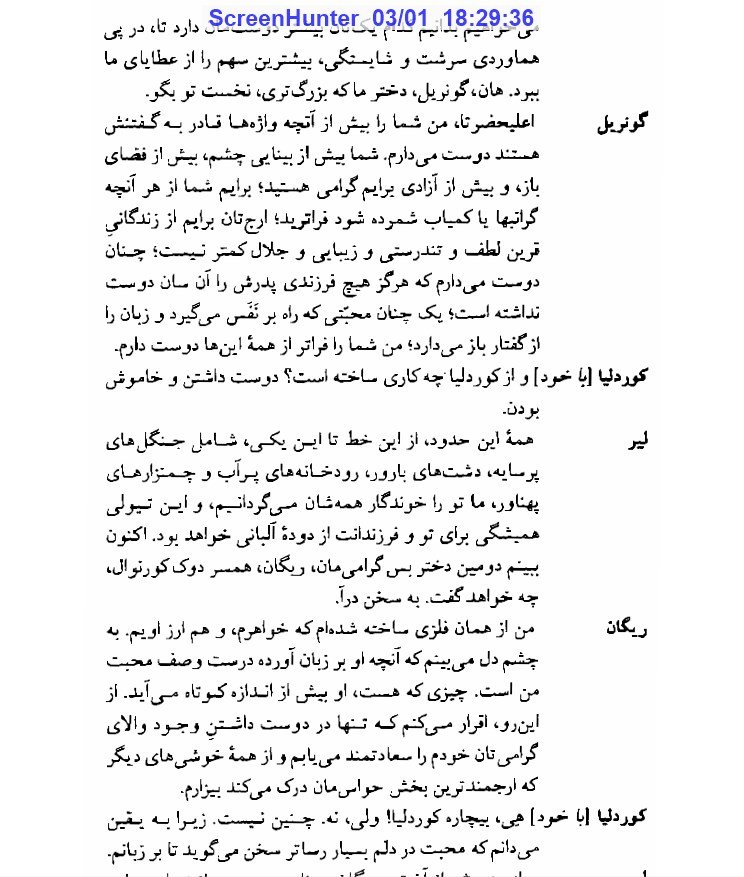 ScreenHunter_03/01_18:29:36
می‌خواهیم بدانیم کدام یک‌تان بیشتر دوست‌مان دارد تا، در پی
هماوردی سرشت و شایستگی، بیشترین سهم را از عطایای ما
ببرد. هان، گونریل، دختر ما که بزرگ‌تری، نخست تو بگو.
گونریل اعلیحضرتا، من شما را بیش از آنچه واژه‌ها قادر به گفتنش
هستند دوست می‌دارم. شما بیش از بینایی چشم، بیش از فضای
باز، و بیش از آزادی برایم گرامی هستید؛ برایم شما از هر آنچه
گرانبها یا کمیاب شمرده شود فراترید؛ ارج‌تان برایم از زندگانیِ
قرین لطف و تندرستی و زیبایی و جلال کمتر نیست؛ چنان
دوست می‌دارم که هرگز هیچ فرزندی پدرش را آن سان دوست
نداشته است؛ یک چنان محبّتی که راه بر نَفَس می‌گیرد و زبان را
از گفتار باز می‌دارد؛ من شما را فراتر از همهٔ این‌ها دوست دارم.
کوردلیا [با خود] و از کوردلیا چه کاری ساخته است؟ دوست داشتن و خاموش
بودن.
لیر همهٔ این حدود، از این خط تا ایـن یکـی، شـامل جـنگل‌های
پرسایه، دشت‌های بارور، رودخـانه‌های پـرآب و چـمنزارهـای
پهناور، ما تو را خوندگار همه‌شان مـی‌گردانـیم، و ایـن تـیولی
همیشگی برای تو و فرزندانت از دودهٔ آلبانی خواهد بود. اکنون
ببینم دومین دختر بس گرامی‌مان، ریگان، همسر دوک کورنوال،
چه خواهد گفت. به سخن درآ.
ریگان من از همان فلزی ساخته شده‌ام که خواهرم، و هم ارز اویم. به
چشم دل می‌بینم که آنچه او بر زبان آورده درست وصف محبت
من است. چیزی که هست، او بیش از انـدازه کـوتاه مـی‌آید. از
این‌رو، اقرار می‌کنم کـه تـنها در دوست داشتنِ وجـود والای
گرامی‌تان خودم را سعادتمند می‌یابم و از همهٔ خوشی‌های دیگر
که ارجمندترین بخش حواس‌مان درک می‌کند بیزارم.
کوردلیا [با خود] هِی، بیچاره کوردلیا! ولی، نه. چنین نیست. زیـرا بـه یـقین
می‌دانم که محبت در دلم بسیار رساتر سخن می‌گوید تا بر زبانم.